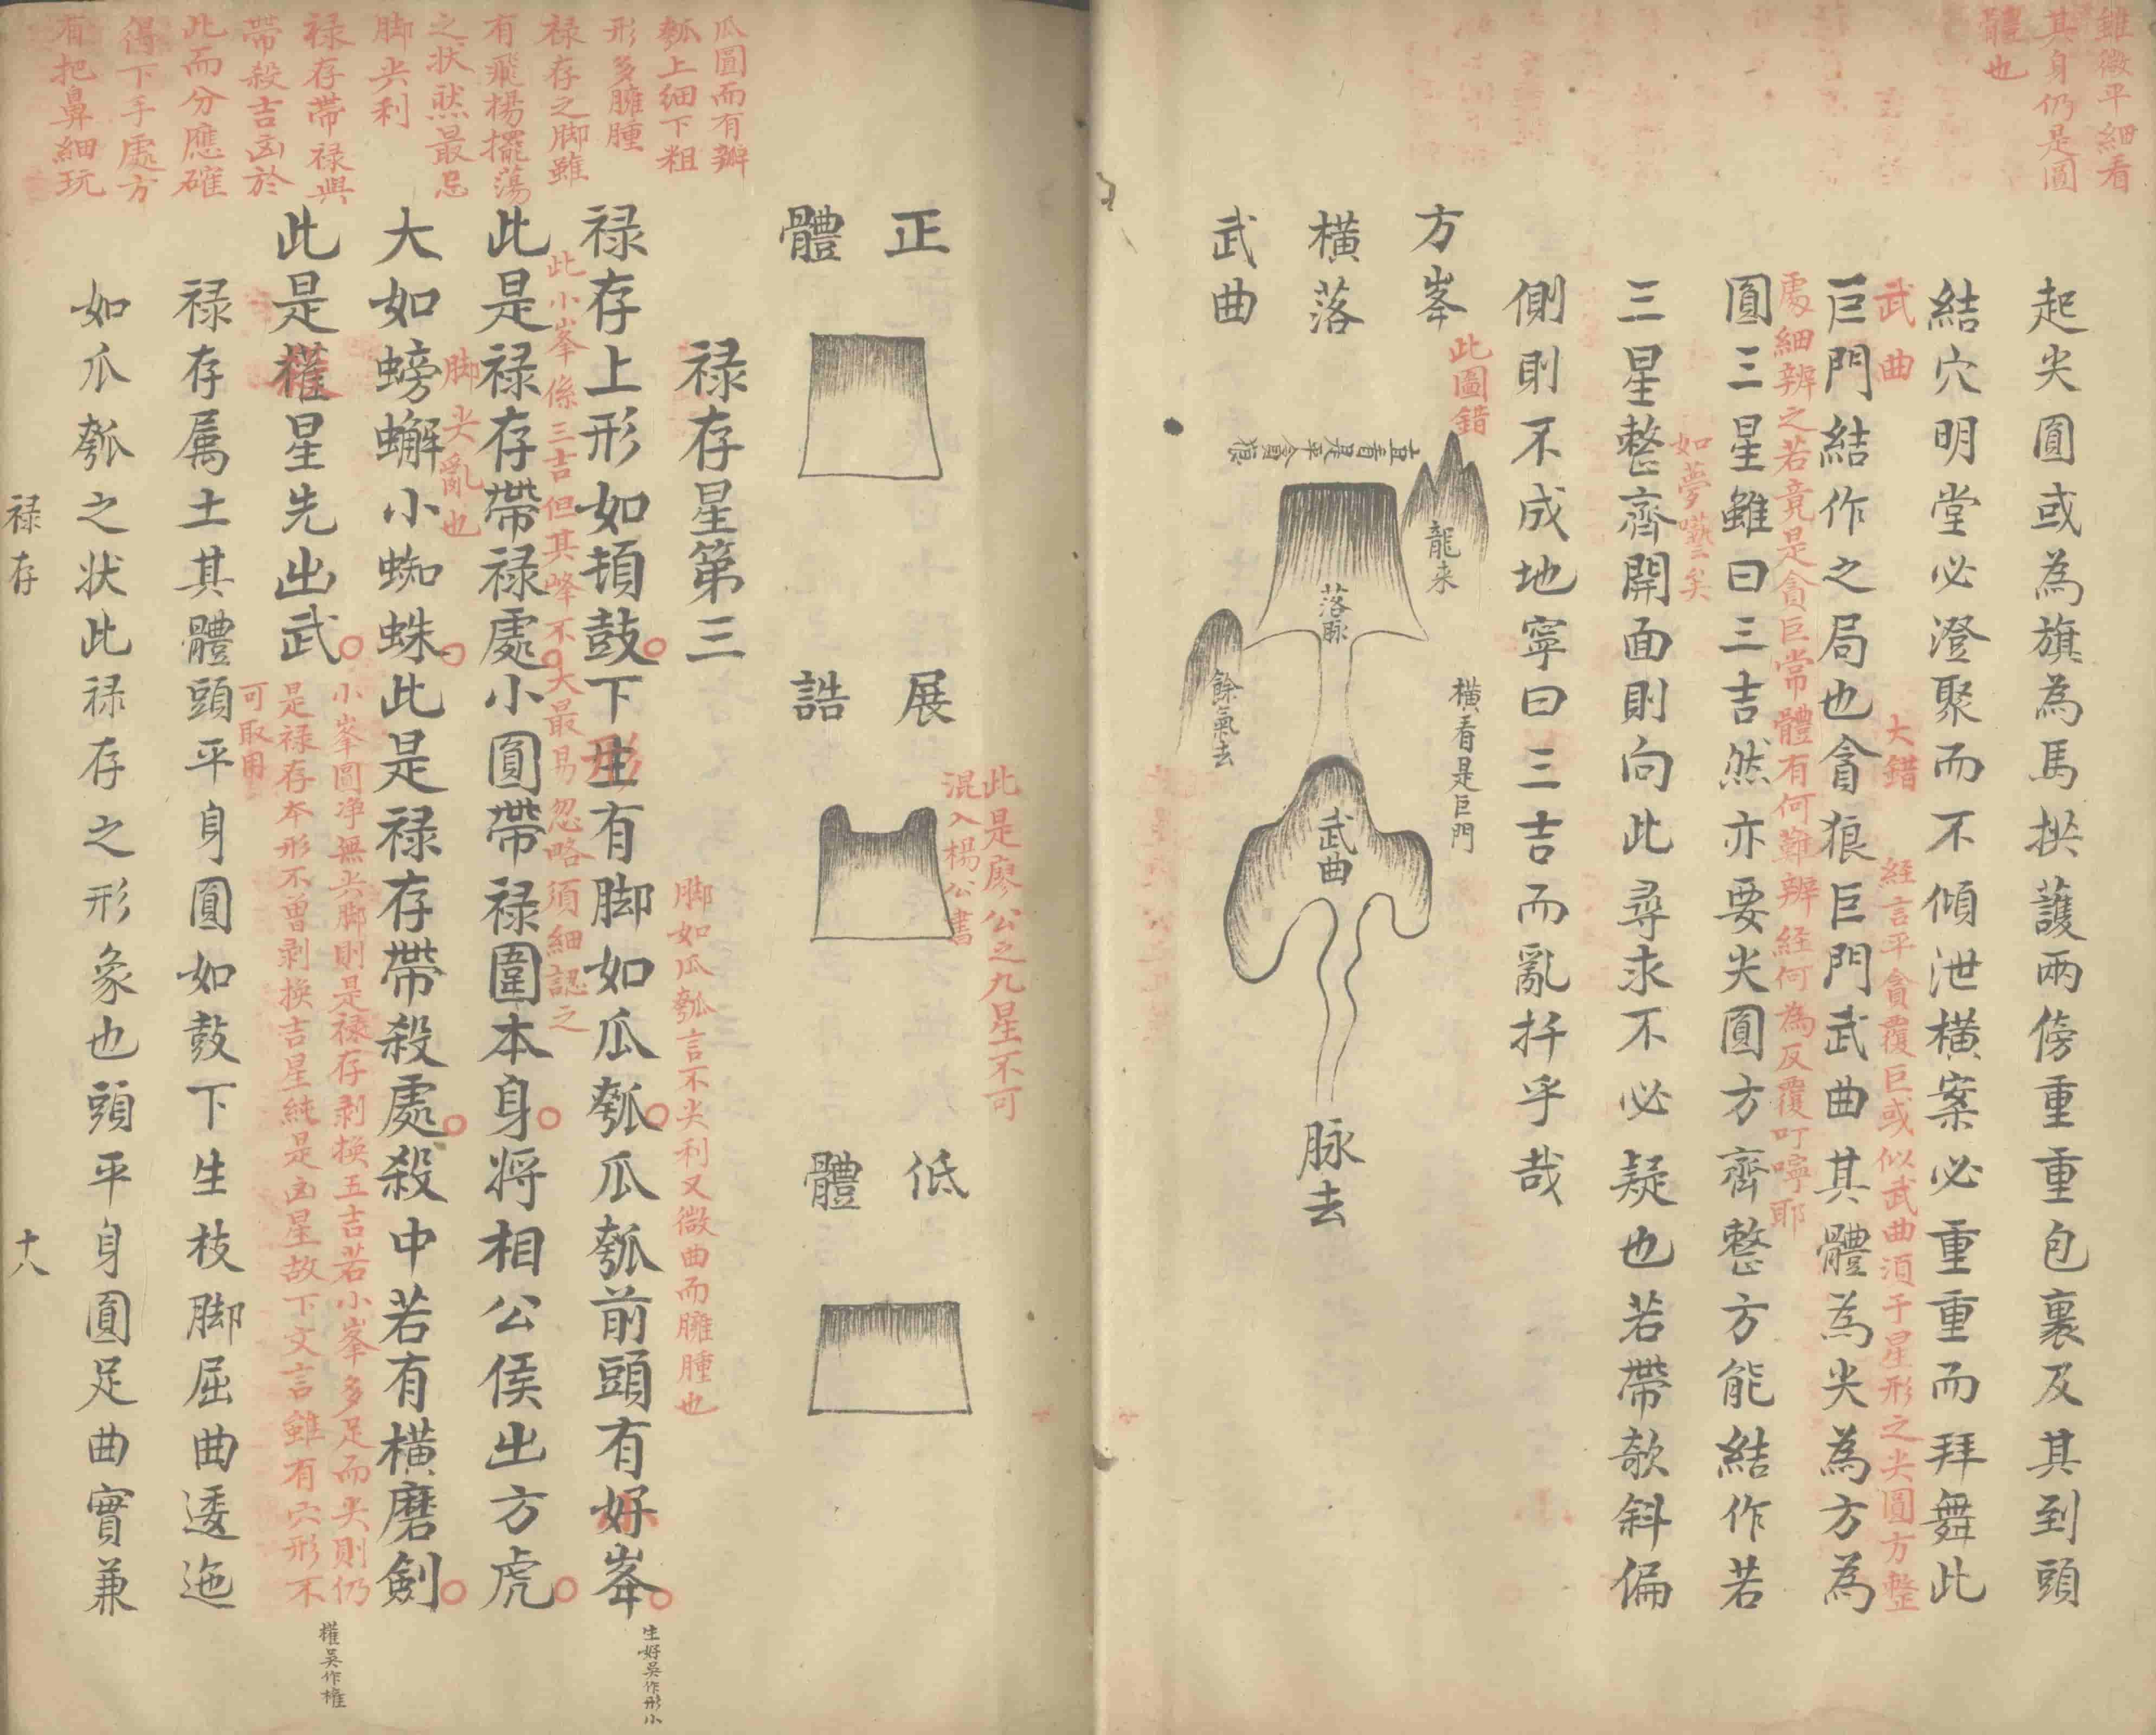 雖微平細看
其身仍是圓
體也
起尖圓或為旗為馬拱護兩傍重重包裹及其到頭
結穴明堂必澄聚而不傾泄橫案必重重而拜舞此
武曲
大錯
經言平貪覆巨或似武曲須于星形之尖圓方整
巨門結作之局也貪狼巨門武曲其體為尖為方為
處細辨之若竟是貪巨常體有何難辨經何為反覆叮嚀耶
圓三星雖曰三吉然亦要尖圓方齊整方能結作若
如夢囈矣
三星整齊開面則向此尋求不必疑也若帶欹斜偏
側則不成地寧曰三吉而亂扦乎哉
方峯
橫落
武曲
此圖錯
直看是平貪狼
龍来
落脉
橫看是巨門
餘氣去
武曲
脉去
正體
展誥
低體
此是廖公之九星不可
混入楊公書
瓜圓而有瓣
瓠上細下粗
形多臃腫
禄存之脚雖
有飛楊擺蕩
之状然最忌
脚尖利
禄存帶禄與
帶殺吉凶於
此而分應確
得下手處方
有把鼻細玩
禄存星第三
脚如瓜瓠言不尖利又微曲而臃腫也
禄存上形如頓鼓下生有脚如瓜瓠瓜瓠前頭有好峯
形
生好吳作形小
此小峯係三吉但其峰不大最易忽略須細認之
此是禄存帶禄處小圓帶禄圍本身将相公侯出方虎
脚尖亂也
大如螃蠏小蜘蛛此是禄存帶殺處殺中若有橫磨劍
此是權星先出武
小峯圓净無尖脚則是禄存剥換五吉若小峯多足而尖則仍
是禄存本形不曾剥換吉星純是凶星故下文言雖有穴形不
可取用
權吳作権
禄存属土其體頭平身圓如鼓下生枝脚屈曲逶迤
如瓜瓠之状此禄存之形象也頭平身圓足曲實兼
禄存
十八